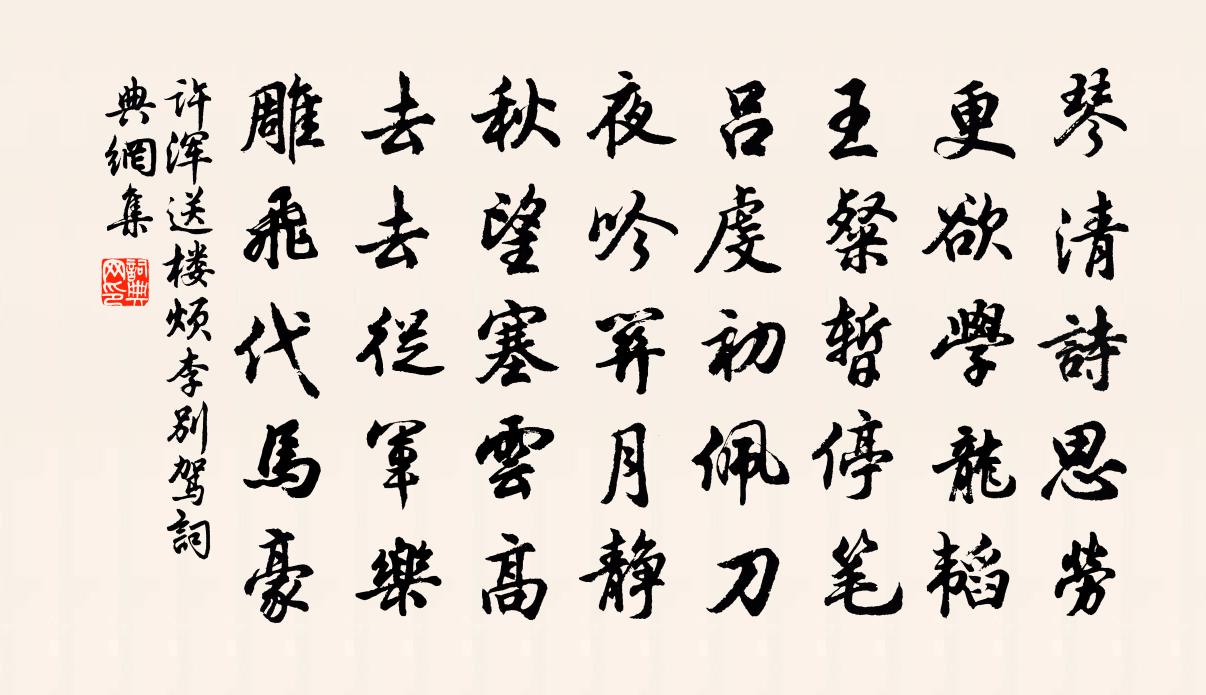 琴清詩思勞
更欲學龍韜
王粲暫停笔
吕虔初佩刀
夜吟笄月静
秋望塞雲高
去去從軍樂
雕飛代馬豪
许渾送楼烦李别驾詞
典網集
詞典
网印